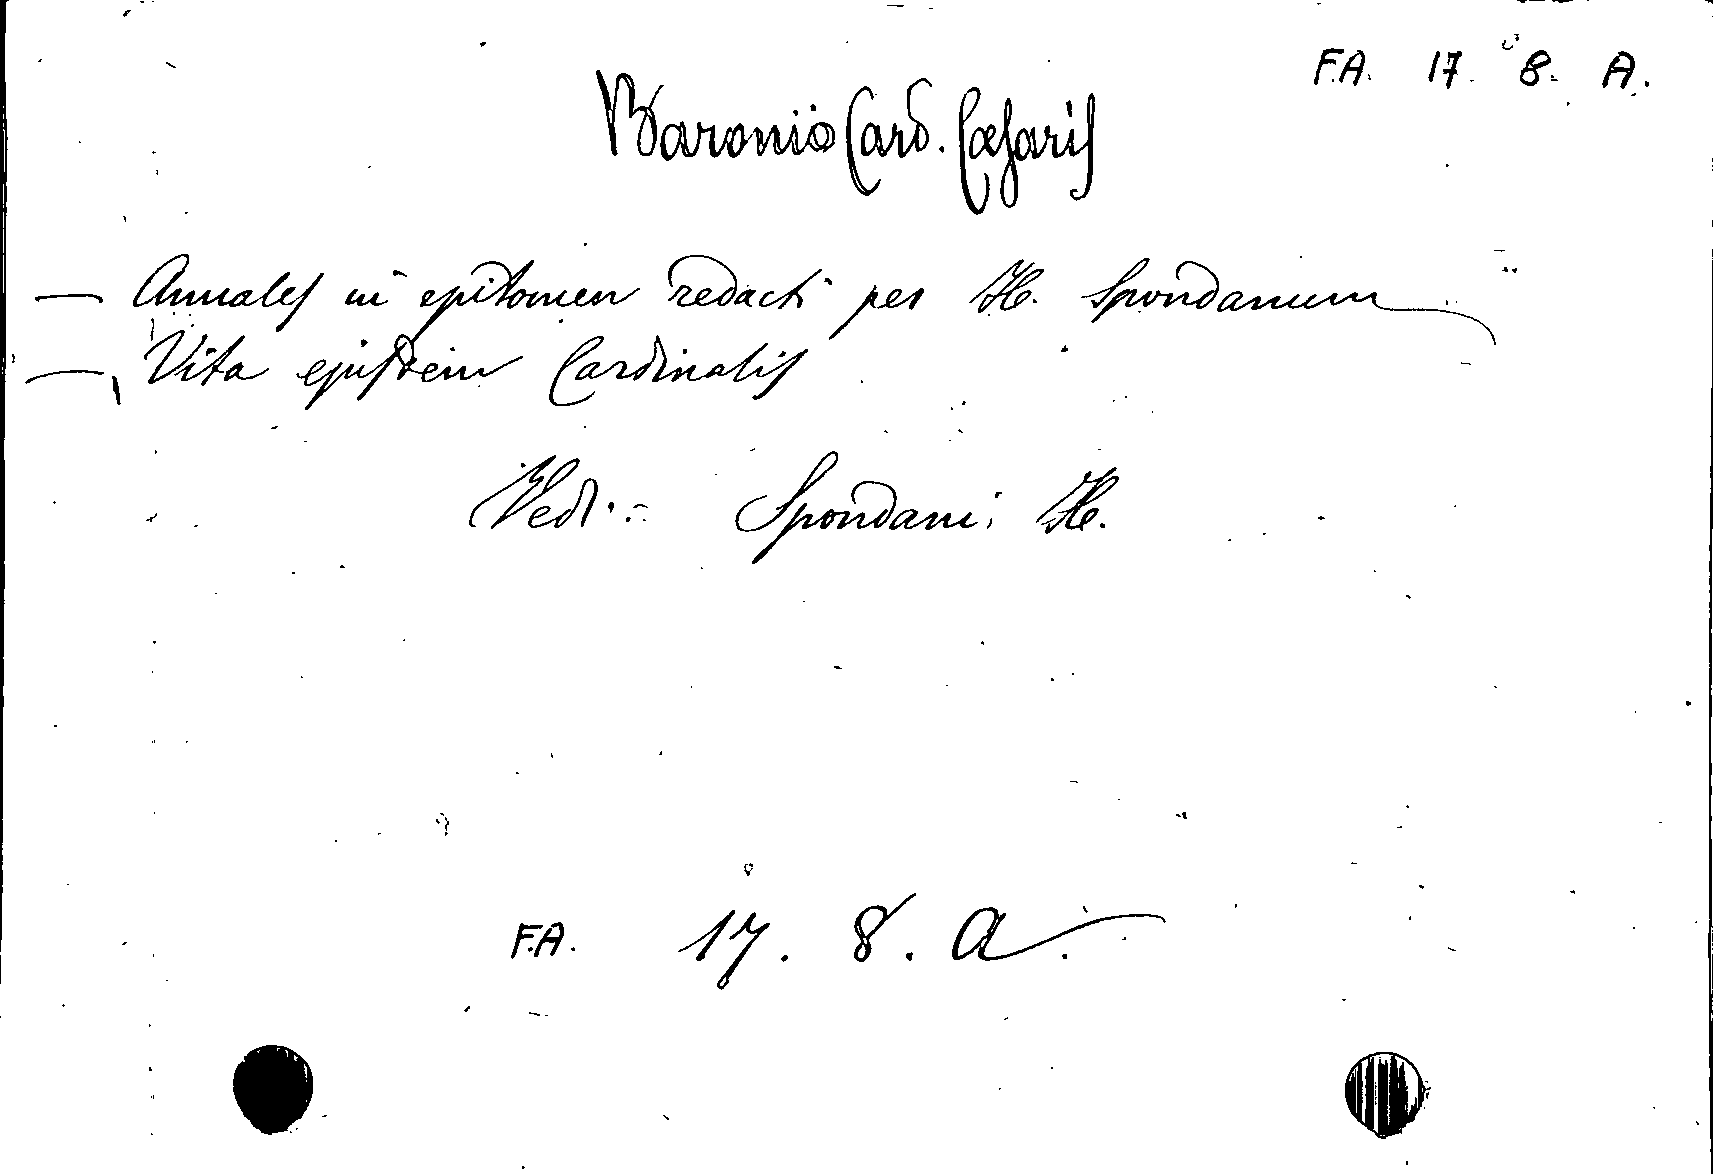 F.A. 17. 8. A.
Baronio Card. Cæsaris
— Annales in epitomen redacti per H. Spondanum
— Vita ejusdem Cardinalis
Vedi: Spondani H.
F.A. 17. 8. a.